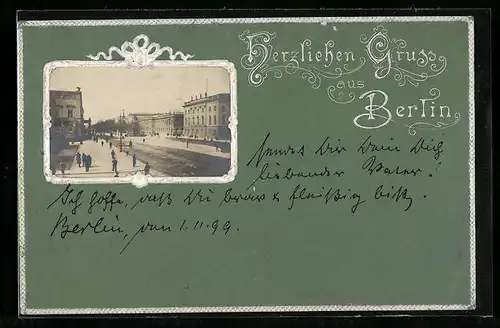 Herzlichen Gruss
aus
Berlin
sendet Dir Dein Dich
liebender Vater!
Ich hoffe, daß Du brav & fleißig bist.
Berlin, den 1.11.99.